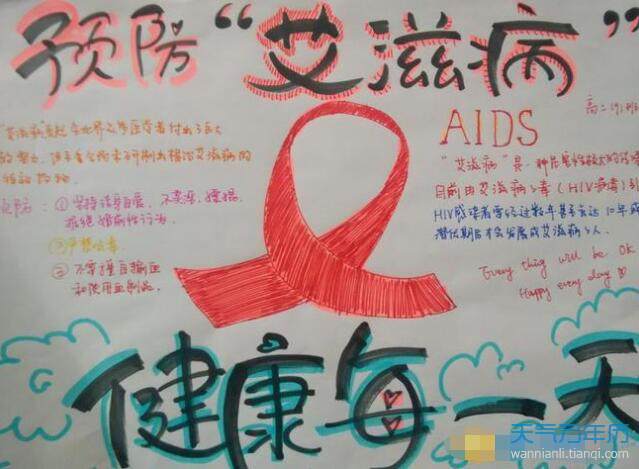 预防“艾滋病”
AIDS
高二(9)班
“艾滋病”虽然全世界众多医学者付出了巨大
的努力,但至今尚未研制出根治艾滋病的
特效药物
预防:①坚持洁身自爱,不卖淫、嫖娼,
拒绝婚前性行为
②严禁吸毒
③不要擅自输血
和使用血制品。
“艾滋病”是一种危害性极大的传
目前由艾滋病病毒(HIV病毒)引
HIV感染者要经过数年甚至长达10年或
潜伏期后才会发展成艾滋病人.
Every thing will be OK
Happy every day
健康每一天
天气万年历
wannianli.tianqi.com